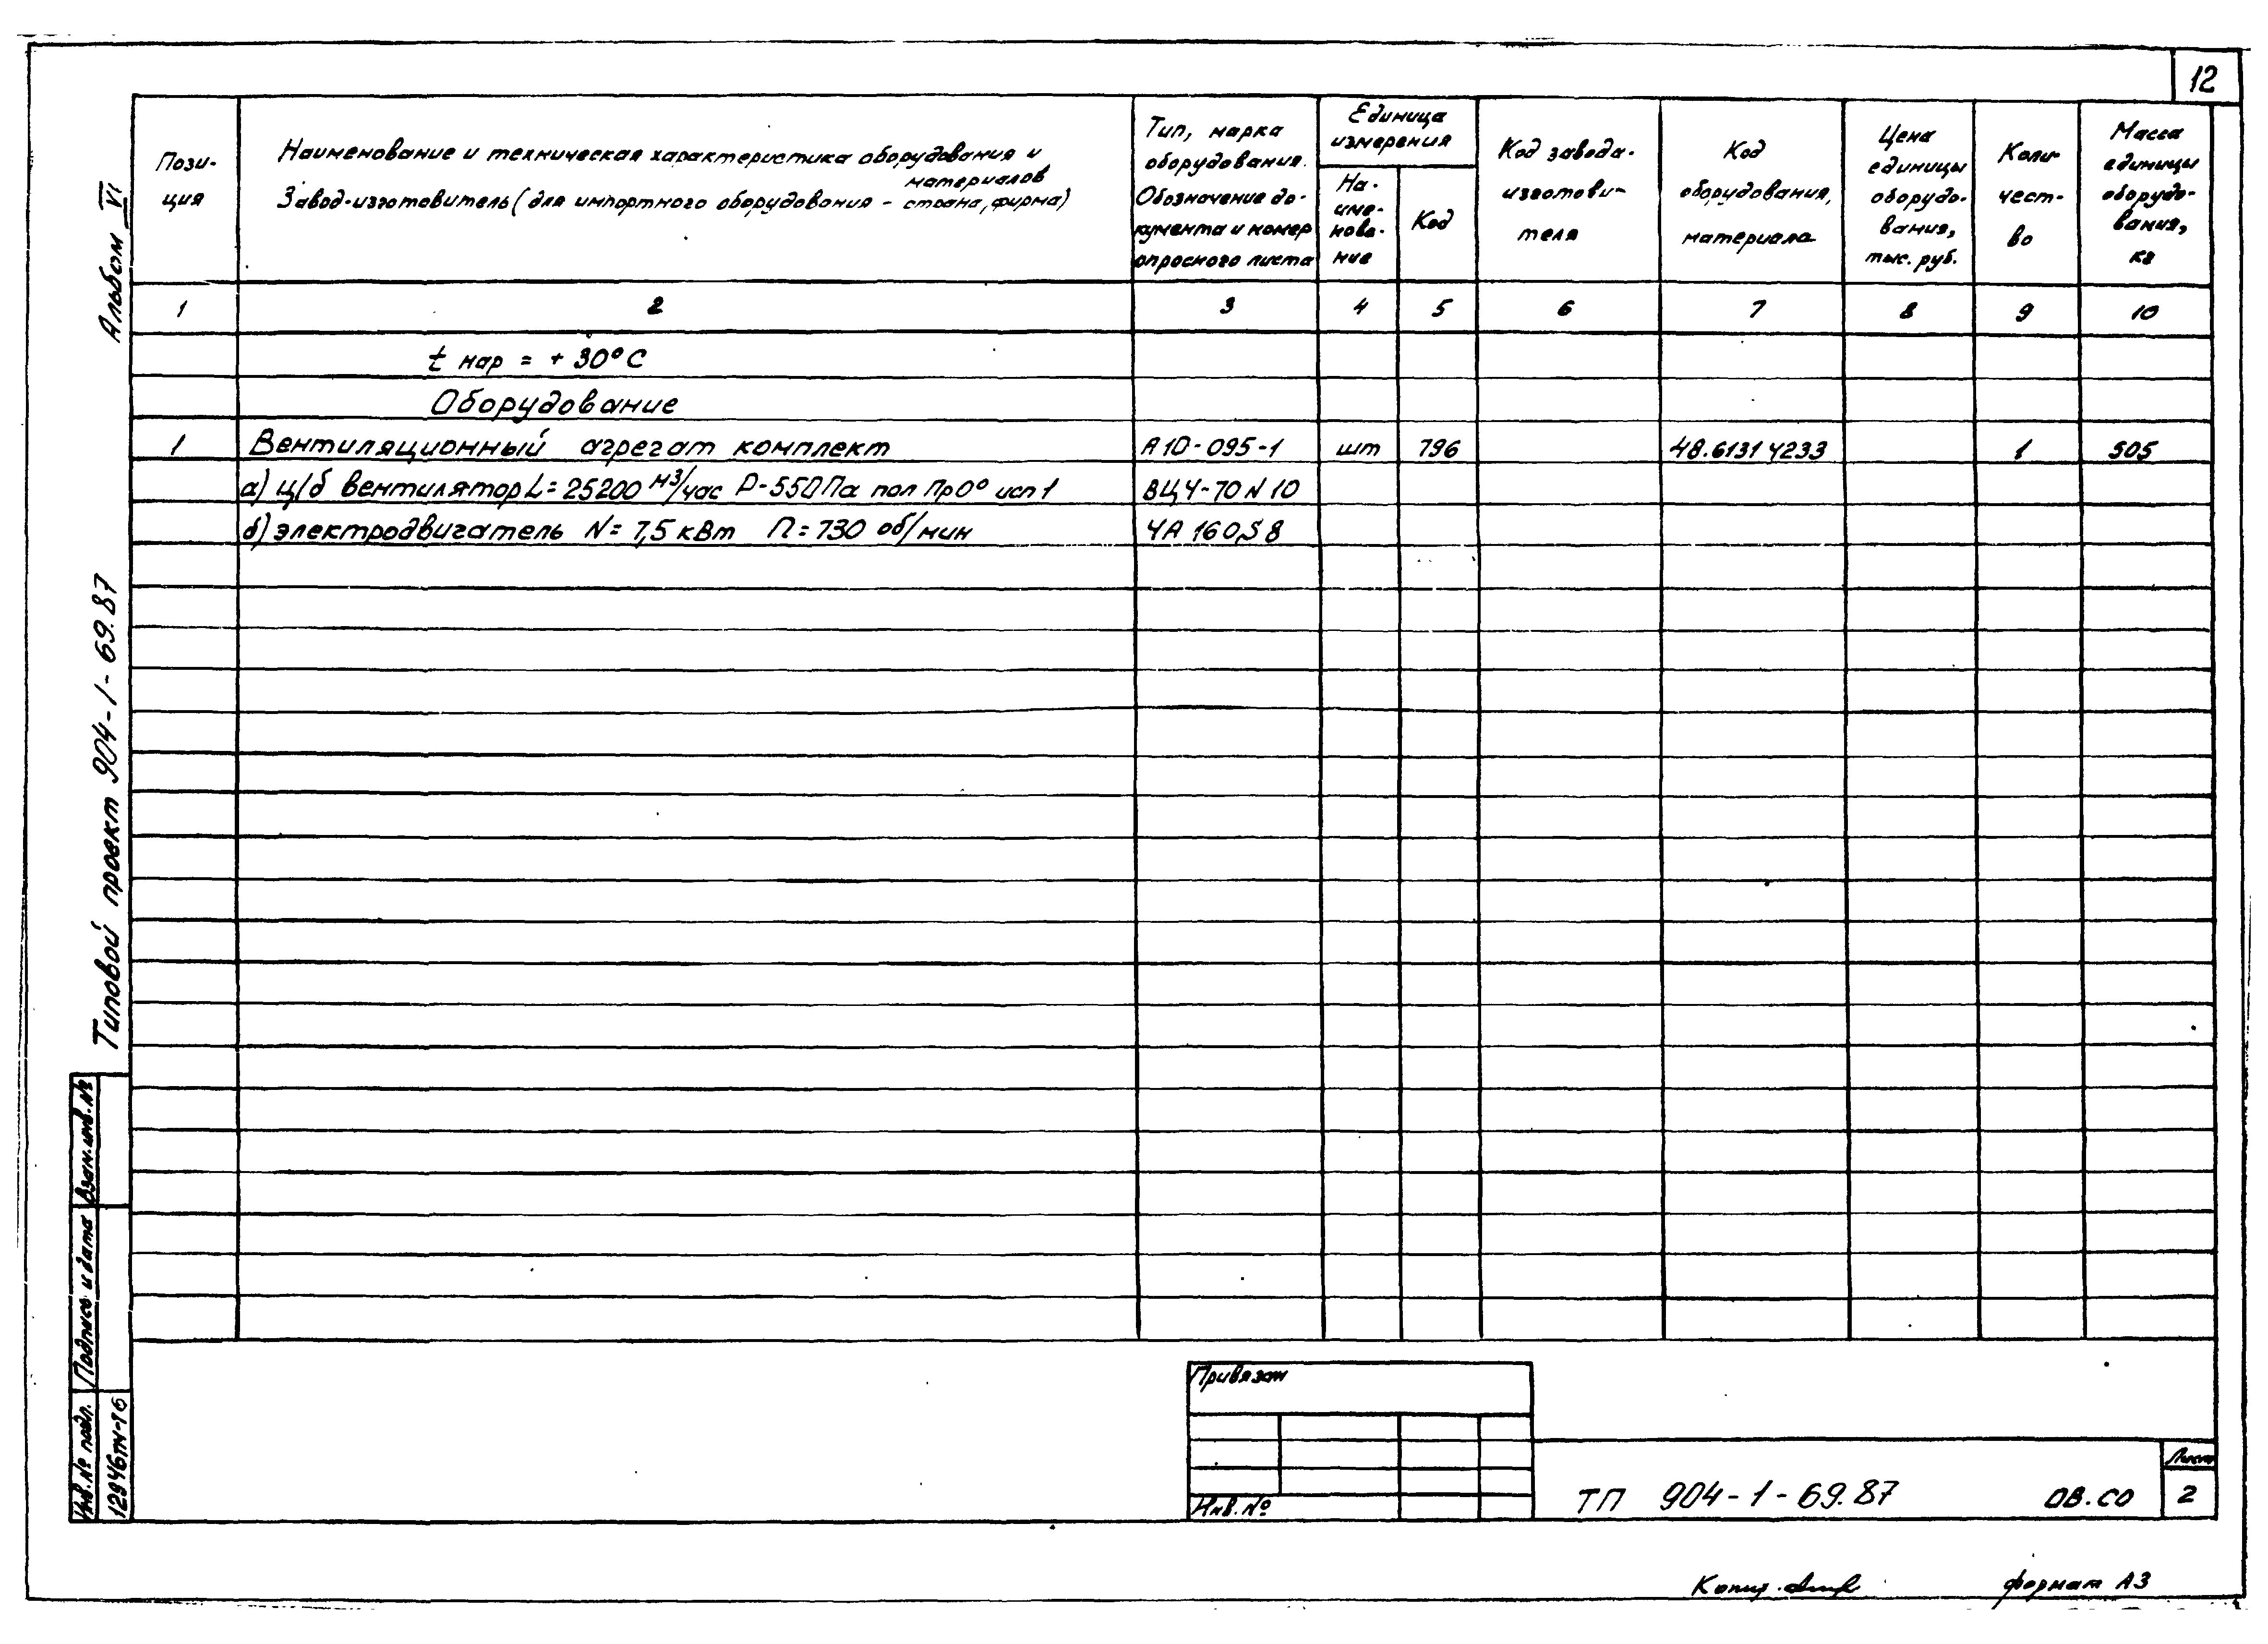 12
Пози-
ция
Наименование и техническая характеристика оборудования и
материалов
Завод-изготовитель (для импортного оборудования - страна, фирма)
Тип, марка
оборудования.
Обозначение до-
кумента и номер
опросного листа
Единица
измерения
На-
име-
нова-
ние
Код
Код завода-
изготови-
теля
Код
оборудования,
материала
Цена
единицы
оборудо-
вания,
тыс. руб.
Коли-
чест-
во
Масса
единицы
оборудо-
вания,
кг
1 2 3 4 5 6 7 8 9 10
t нар = + 30°С
Оборудование
1 Вентиляционный агрегат комплект А10-095-1 шт 796 48.6131 4233 1 505
а) ц/б вентилятор L= 25200 м3/час P-550Па пол Пр0° исп 1 ВЦ4-70 N 10
б) электродвигатель N= 7,5 кВт n= 730 об/мин 4А 160S8
Альбом VI
Типовой проект 904-1-69.87
Взам.инв.№
Подпись и дата
Инв.№ подл.
12946тм-76
Привязан
Инв. №
ТП 904-1-69.87 ОВ.СО
Лист
2
Копир.
формат А3